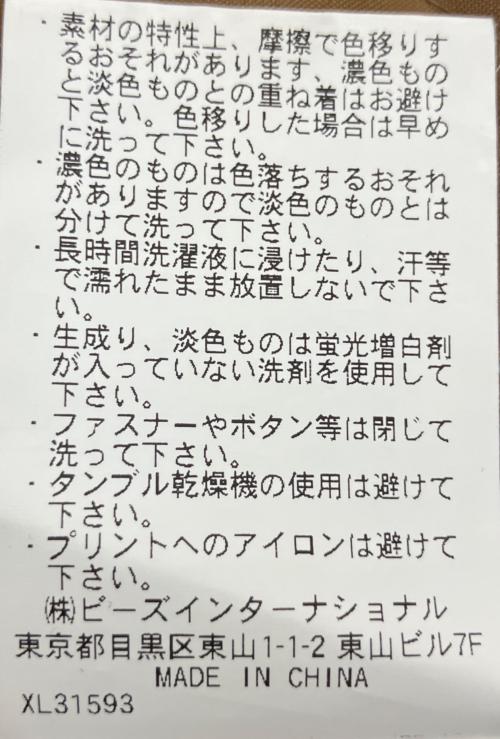 ・素材の特性上、摩擦で色移りす
るおそれがあります、濃色もの
と淡色ものとの重ね着はお避け
下さい。色移りした場合は早め
に洗って下さい。
・濃色のものは色落ちするおそれ
がありますので淡色のものとは
分けて洗って下さい。
・長時間洗濯液に浸けたり、汗等
で濡れたまま放置しないで下さ
い。
・生成り、淡色ものは蛍光増白剤
が入っていない洗剤を使用して
下さい。
・ファスナーやボタン等は閉じて
洗って下さい。
・タンブル乾燥機の使用は避けて
下さい。
・プリントへのアイロンは避けて
下さい。
㈱ビーズインターナショナル
東京都目黒区東山1-1-2 東山ビル7F
MADE IN CHINA
XL31593